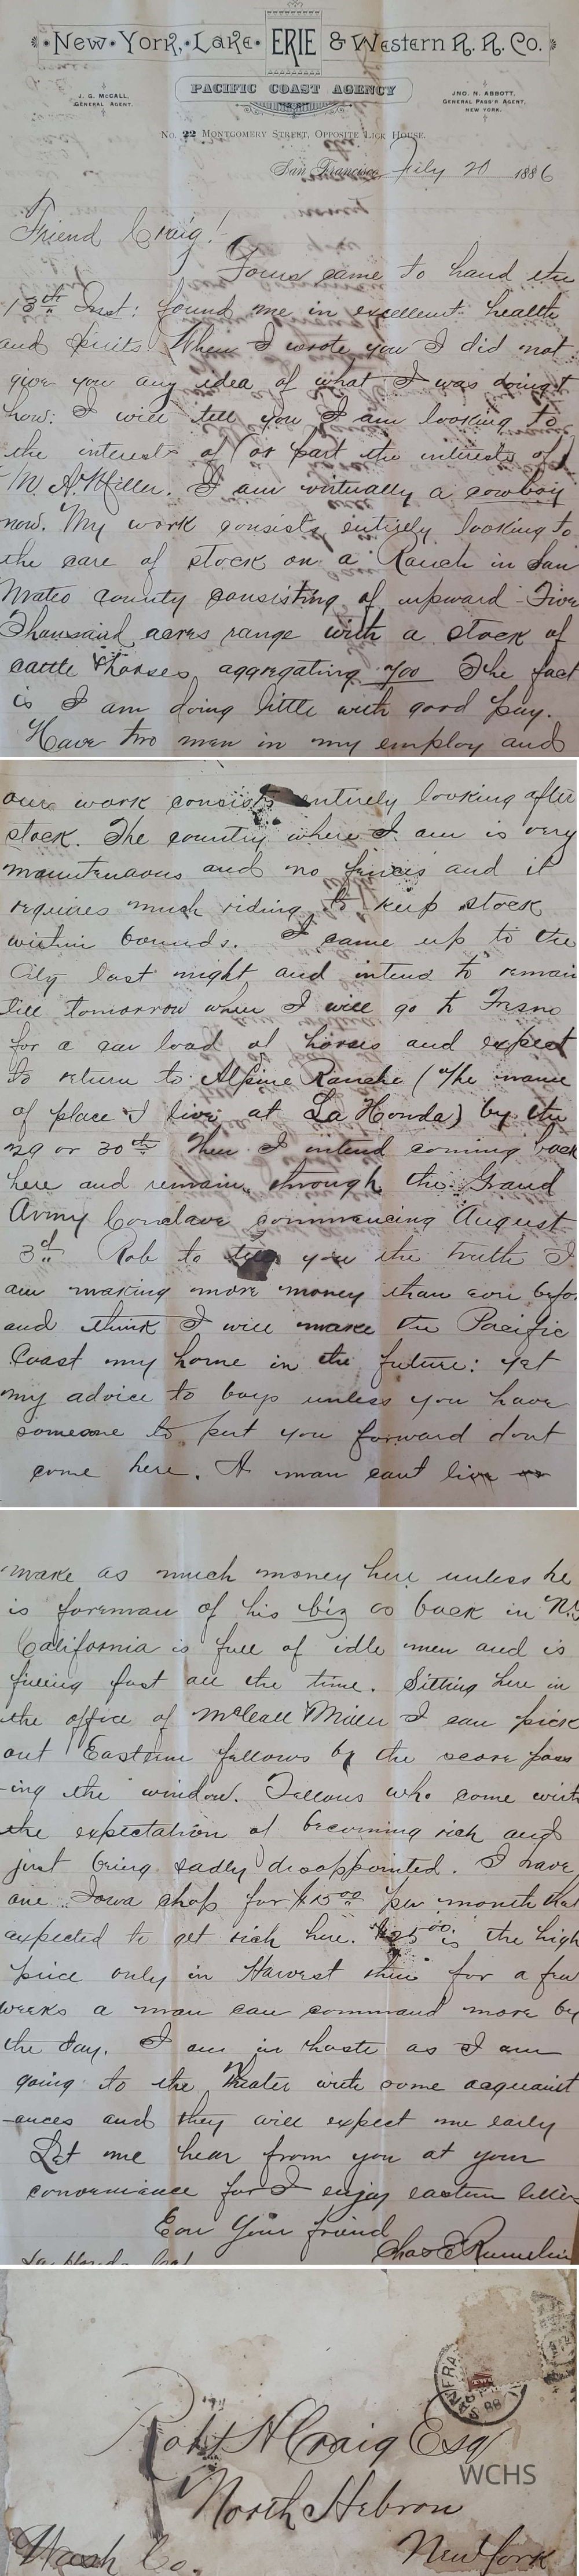 New·York,·Lake· ERIE & Western R. R. Co.
J. G. McCALL,
GENERAL AGENT.
PACIFIC COAST AGENCY
JNO. N. ABBOTT,
GENERAL PASS'R AGENT,
NEW YORK.
No. 22 Montgomery Street, Opposite Lick House.
San Francisco, July 20 1886
Friend Craig!
Yours came to hand the
13th Inst: found me in excellent health
and spirits. When I wrote you I did not
give you any idea of what I was doing &
how: I will tell you I am looking to
the interests of (or part the interests of)
M. A. Miller. I am virtually a cowboy
now. My work consists entirely looking to
the care of stock on a Ranch in San
Mateo county consisting of upward Five
Thousand acres range with a stock of
cattle & horses aggregating 700 The fact
is I am doing little with good pay.
Have two men in my employ and
our work consists entirely looking after
stock. The country where I am is very
mountenaous and no fences and it
requires much riding to keep stock
within bounds. I came up to the
City last night and intend to remain
till tomorrow when I will go to Fresno
for a car load of horses and expect
to return to Alpine Ranche (the name
of place I live, at La Honda) by the
29 or 30th Then I intend coming back
here and remain through the Grand
Army Conclave commencing August
3d Rob to tell you the truth I
am making more money than ever befo
and think I will make the Pacific
Coast my home in the future: yet
my advice to boys unless you have
someone to put you forward dont
come here. A man cant live or
make as much money here unless he
is foreman of his biz as back in N.Y
California is full of idle men and is
filling fast all the time. Sitting here in
the office of McCall & Miller I can pick
out Eastern fellows by the score pass
-ing the window. Fellows who come with
the expectation of becoming rich and
just being sadly disappointed. I have
one Iowa chap for $15.00 per month that
expected to get rich here. $25.00 is the high
price only in Harvest then for a few
weeks a man can command more by
the day. I am in haste as I am
going to the Theater with some acquaint
-ances and they will expect me early
Let me hear from you at your
convenience for I enjoy eastern letters
Ever Your friend
Chas E
La Honda Cal
Robt H Craig Esq
WCHS
North Hebron
Wash Co.
New York